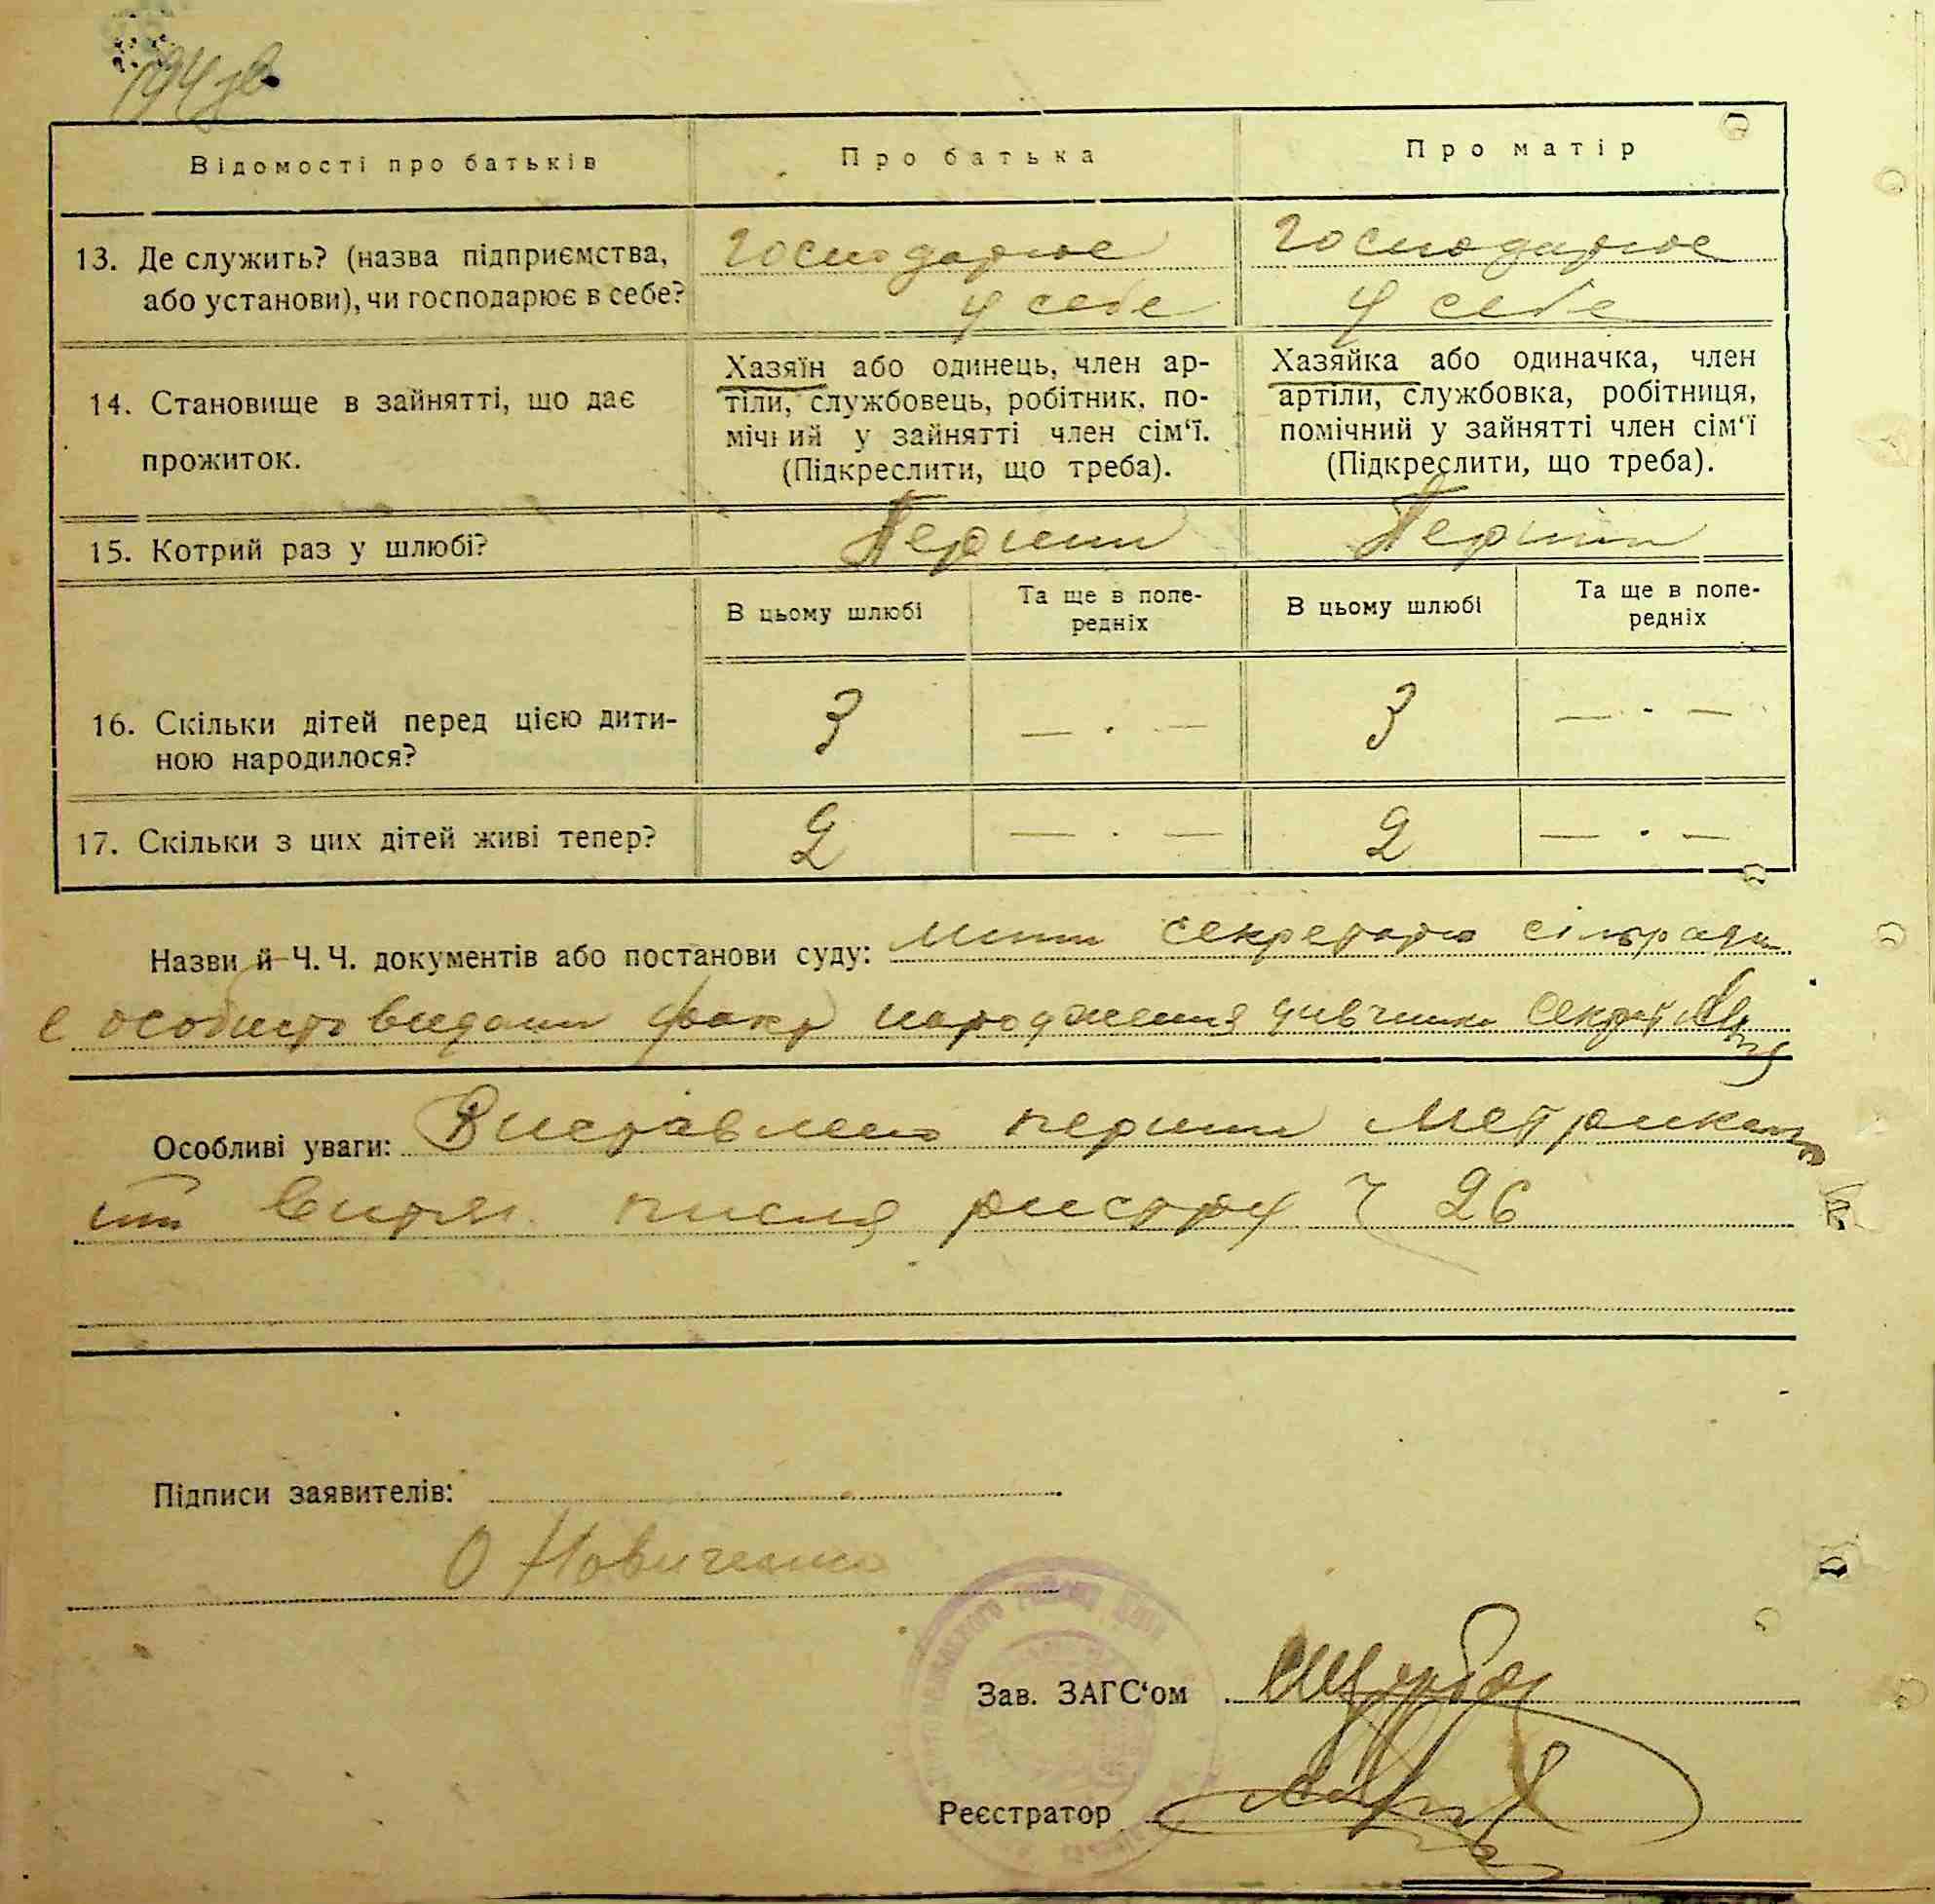 194зв
Відомості про батьків
Про батька
Про матір
13. Де служить? (назва підприємства,
або установи), чи господарює в себе?
господарює
у себе
господарює
у себе
14. Становище в зайнятті, що дає
прожиток.
Хазяїн або одинець, член ар-
тіли, службовець, робітник, по-
мічний у зайнятті член сім‘ї.
(Підкреслити, що треба).
Хазяйка або одиначка, член
артіли, службовка, робітниця,
помічний у зайнятті член сім‘ї
(Підкреслити, що треба).
15. Котрий раз у шлюбі?
Перший
Перший
В цьому шлюбі
Та ще в попе-
редніх
В цьому шлюбі
Та ще в попе-
редніх
16. Скільки дітей перед цією дити-
ною народилося?
3
— . —
3
— . —
17. Скільки з цих дітей живі тепер?
2
— . —
2
— . —
Назви й Ч. Ч. документів або постанови суду: секретарю сільради
є особисто видани факт народження дивчини секрет
Особливі уваги: Виставлено перший Метрикаль
ний витяг писля риестру ч 26
Підписи заявителів:
О Новиченко
Зав. ЗАГС‘ом
Реєстратор